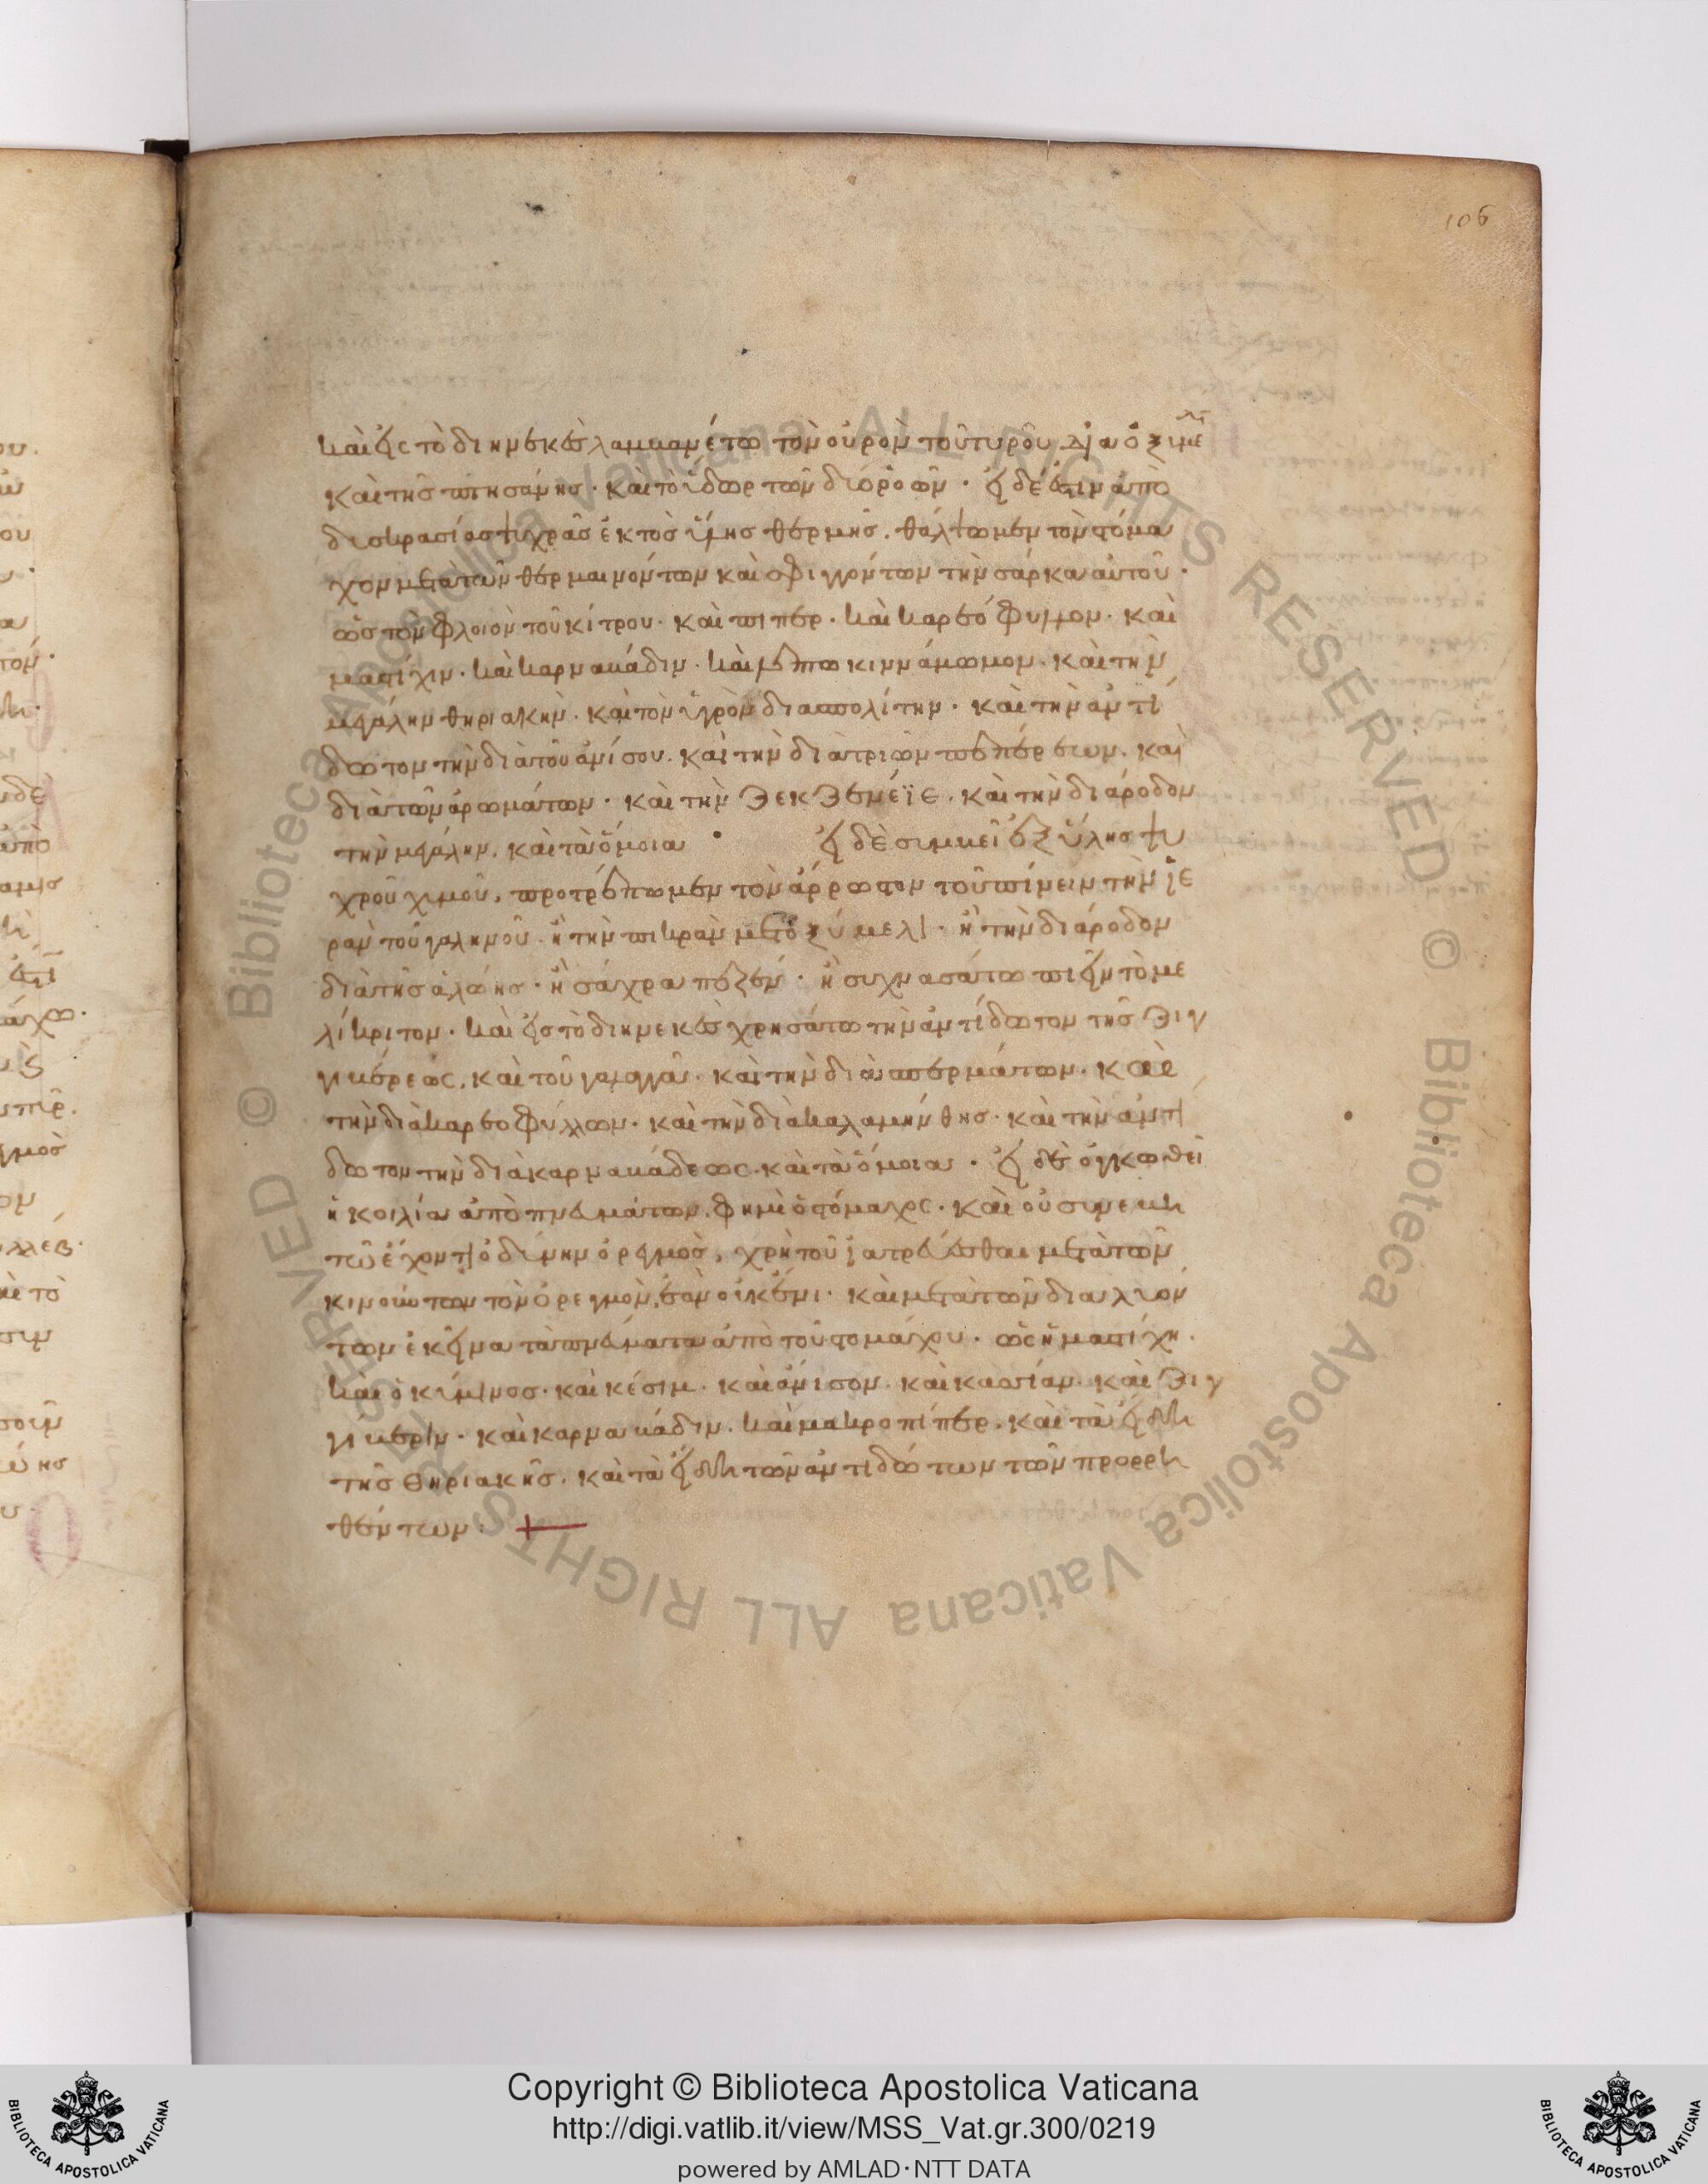 106
καὶ εἰς τὸ διηνεκὲς λαμβανέτω τὸν οὐρὸν τοῦ τυροῦ διὰ ὀξιμέλι
καὶ τῆς πτησάνης · καὶ τὸ ὕδωρ τῶν διορόων · εἰ δέ ἐστιν ἀπὸ
δυσκρασίας ψυχρᾶς ἐκτὸς ὕλης θερμῆς · θάλψωμεν τὸν στόμα
χον μετὰ τῶν θερμαινόντων καὶ σφιγγόντων τὴν σάρκα αὐτοῦ ·
ὡς τὸν φλοιὸν τοῦ κίτρου · καὶ πίπερ · καὶ καρεόφυλλον · καὶ
μαστίχιν · καὶ καρναβάδιν · καὶ βλέπω κιννάμωμον · καὶ τὴν
μεγάλην θηριακήν · καὶ τὸν ὑγρὸν διασπολίτην · καὶ τὴν ἀντί
δωτον τὴν διὰ τοῦ ἀνίσου · καὶ τὴν διὰ τριῶν πεπέρεων · καὶ
διὰ τῶν ἀρωμάτων · καὶ τὴν ζεκζεμέϊε · καὶ τὴν διάροδον
τὴν μεγάλην · καὶ τὰ ὅμοια · εἰ δὲ συμβεῖ ἐξ ὕλης ψυ
χροῦ χιμοῦ · προτρέπωμεν τὸν ἄρρωστον τοῦ πίνειν τὴν ἱε
ρὰν τοῦ γαληνοῦ · ἢ τὴν πικρὰν μετ' ὀξύμελι · ἢ τὴν διάροδον
διὰ τῆς ἀλόης · ἢ σάχρα πέζεν · ἢ συχνασάτω πιεῖν τὸ με
λίκριτον · καὶ εἰς τὸ διηνεκὲς χρησάτω τὴν ἀντίδωτον τῆς ζιγ
γιβέρεως · καὶ τοῦ γαλαγγᾶ · καὶ τὴν διὰ σπερμάτων · καὶ
τὴν διὰ καρεοφύλλων · καὶ τὴν διὰ καλαμήνθης · καὶ τὴν ἀντί
δωτον τὴν διὰ καρναβάδεως · καὶ τὰ ὅμοια · εἰ δὲ ὀγκωθεῖ
ἡ κοιλία ἀπὸ πνευμάτων · φημὶ ὁ στόμαχος · καὶ οὐ συμβῆ
τῶ ἔχοντι ὀδύνην ὀρεγμὸς · χρὴ τοῦ ἰατρεύεσθαι μετὰ τῶν
κινούντων τὸν ὀρεγμὸν, ἐὰν οὐκ ἔνι · καὶ μετὰ τῶν διαλυόν
των ἐκεῖνα τὰ πνεύματα ἀπὸ τοῦ στομάχου · ὡς ἡ μαστίχη ·
καὶ ὁ κύμινος · καὶ κέσιμ · καὶ ἄνισον · καὶ κασίαν · καὶ ζιγ
γίβεριν · καὶ καρναβάδιν · καὶ μακροπίπερ · καὶ τὰ εἴδη
τῆς θηριακῆς · καὶ τὰ εἴδη τῶν ἀντιδώτων τῶν προρρη
θέντων ·
Copyright © Biblioteca Apostolica Vaticana
http://digi.vatlib.it/view/MSS_Vat.gr.300/0219
powered by AMLAD·NTT DATA
© Biblioteca Apostolica Vaticana ALL RIGHTS RESERVED © Biblioteca Apostolica Vaticana ALL RIGHTS RESERVED
BIBLIOTECA APOSTOLICA VATICANA
BIBLIOTECA APOSTOLICA VATICANA